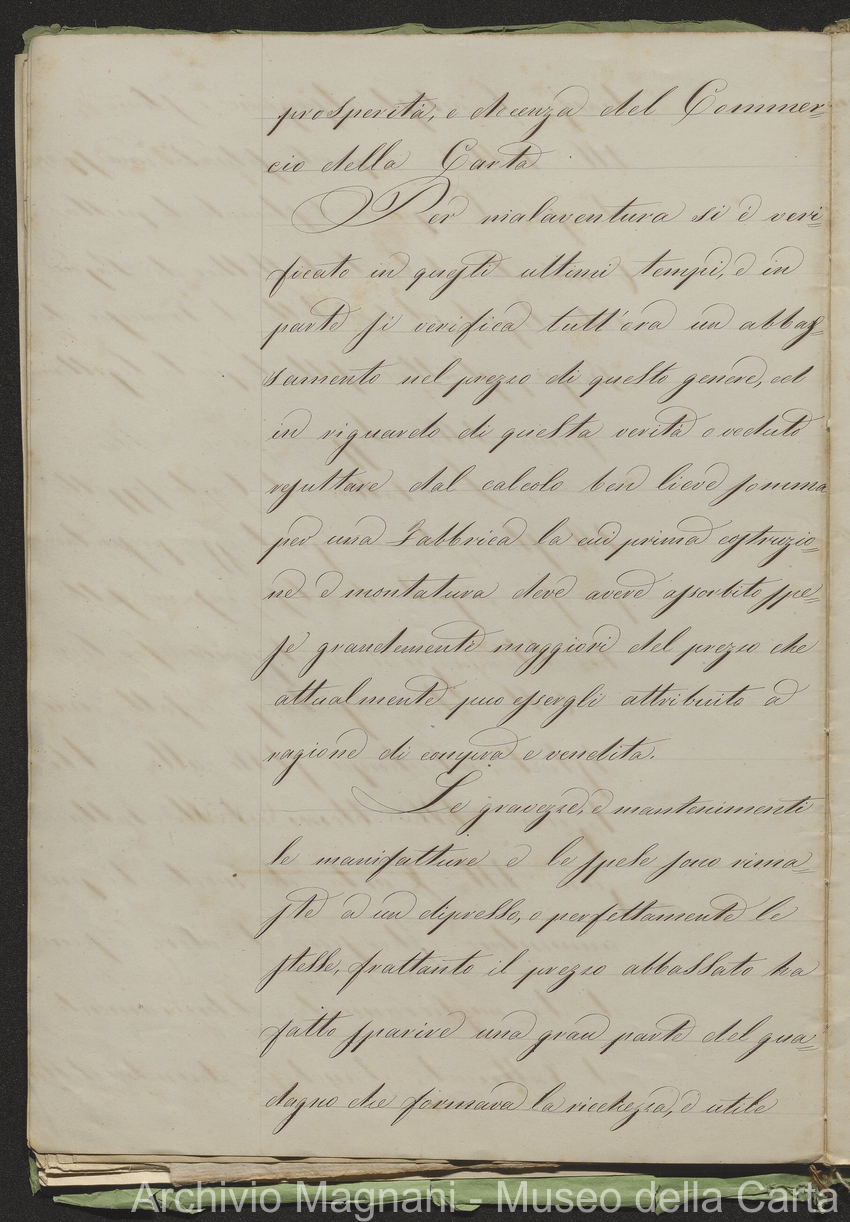 prosperità, o decenza del Commer=
cio della Carta
Per malaventura si è veri=
ficato in questi ultimi tempi, e in
parte si verifica tutt'ora un abbas=
samento nel prezzo di questo genere, ed
in riguardo di questa verità o veduto
resultare dal calcolo ben lieve somma
per una Fabbrica la cui prima costruzio=
ne e montatura deve avere assorbito spe=
se grandemente maggiori del prezzo che
attualmente puo essergli attribuito a
ragione di compra e vendita.
Le gravezze, e mantenimenti
le manifatture e le spese sono rima=
ste a un dipresso, o perfettamente le
stesse, frattanto il prezzo abbassato ha
fatto sparire una gran parte del gua=
dagno che formava la ricchezza, e utile
Archivio Magnani - Museo della Carta